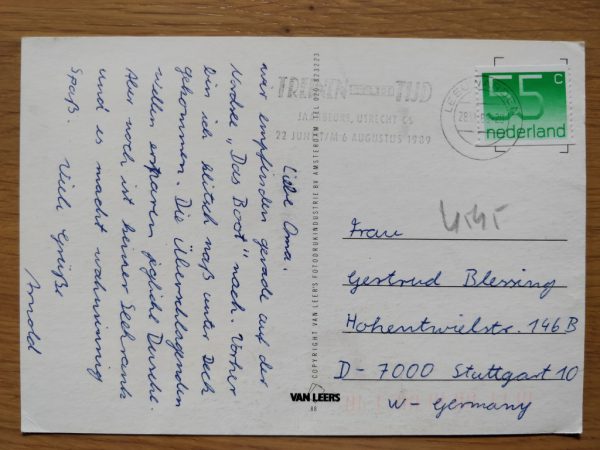 Liebe Oma.
wir empfinden gerade auf der
Nordsee „Das Boot" nach. Vorher
bin ich klitsch naß unter Deck
gekommen. Die Überschlagenden
Wellen ersparen jegliche Dusche.
Aber noch ist keiner Seekrank
und es macht wahnsinnig
Spaß. Viele Grüße
Arnold
COPYRIGHT VAN LEER'S FOTODRUKINDUSTRIE BV AMSTERDAM TEL 020-823223
VAN LEERS
88
TREINEN TIJD
JAARBEURS, UTRECHT CS
22 JUNI T/M 6 AUGUSTUS 1989
55 c
nederland
Frau
Gertrud Blessing
Hohentwielstr. 146 B
D-7000 Stuttgart 10
W-Germany